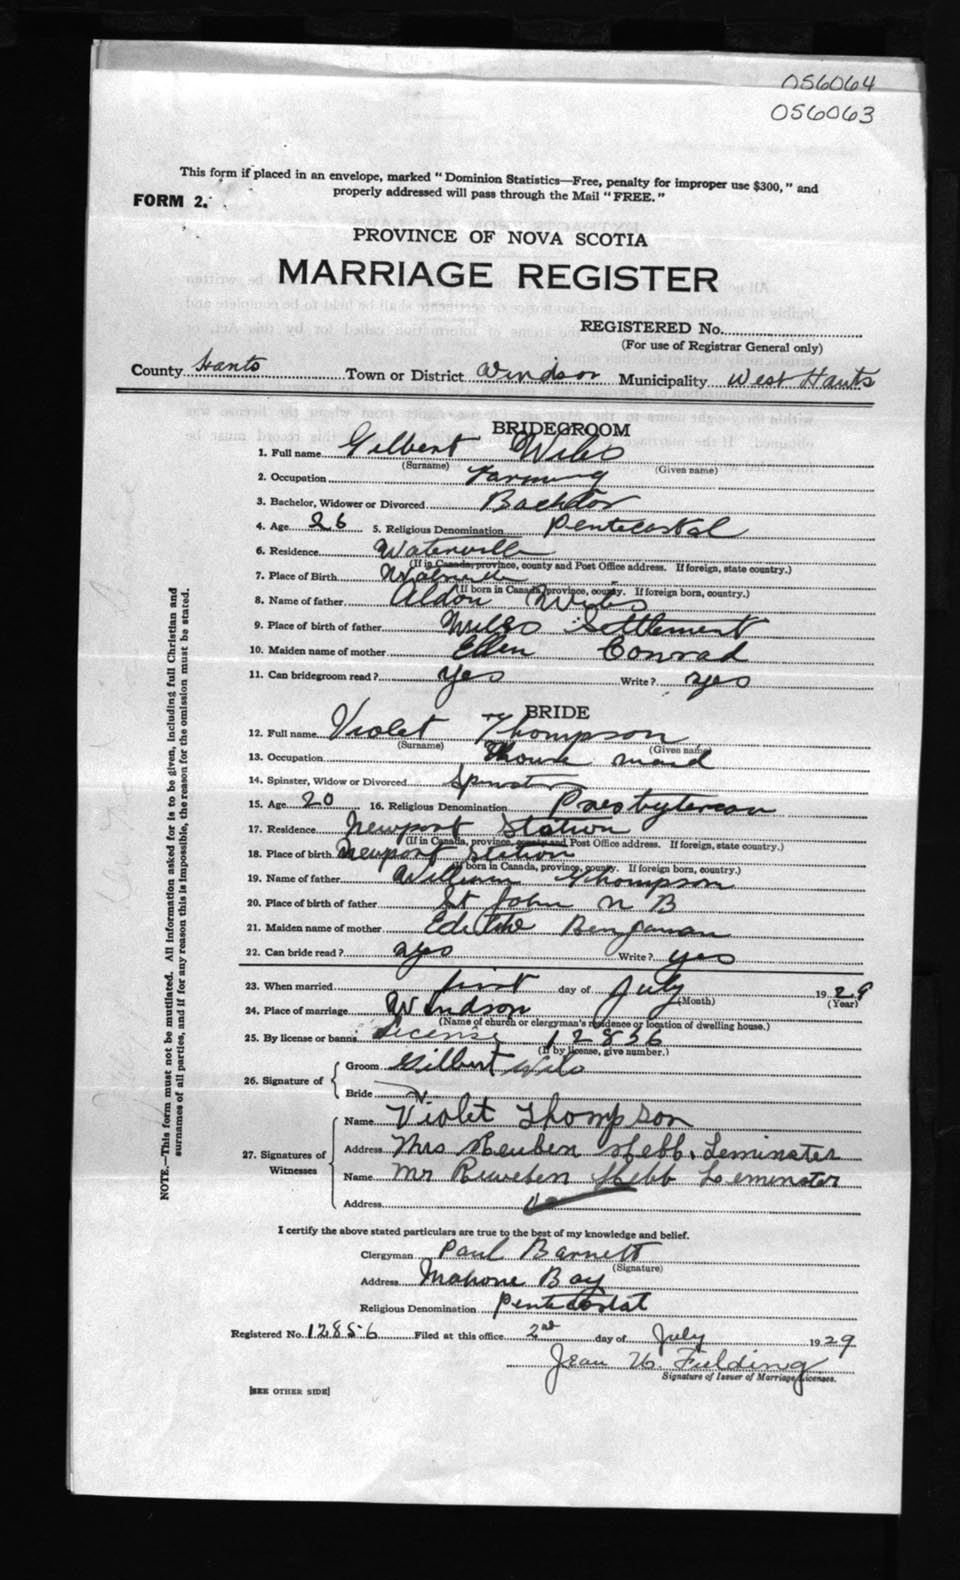 056064
056063
This form if placed in an envelope, marked "Dominion Statistics—Free, penalty for improper use $300," and
properly addressed will pass through the Mail "FREE."
FORM 2.
PROVINCE OF NOVA SCOTIA
MARRIAGE REGISTER
REGISTERED No.
(For use of Registrar General only)
County Hants Town or District Windsor Municipality West Hants
BRIDEGROOM
1. Full name Gilbert Wile
(Surname) (Given name)
2. Occupation Farming
3. Bachelor, Widower or Divorced Bachelor
4. Age 26 5. Religious Denomination Pentecostal
6. Residence Waterville
(If in Canada, province, county and Post Office address. If foreign, state country.)
7. Place of Birth
(If born in Canada, province, county. If foreign born, country.)
8. Name of father Aldon Wile
9. Place of birth of father Wiles Settlement
10. Maiden name of mother Ellen Conrad
11. Can bridegroom read? yes Write? yes
BRIDE
12. Full name Violet Thompson
(Surname) (Given name)
13. Occupation House maid
14. Spinster, Widow or Divorced Spinster
15. Age 20 16. Religious Denomination Presbyterean
17. Residence Newport Station
(If in Canada, province, county and Post Office address. If foreign, state country.)
18. Place of birth Newport Station
(If born in Canada, province, county. If foreign born, country.)
19. Name of father William Thompson
20. Place of birth of father St John N B
21. Maiden name of mother Benjaman
22. Can bride read? yes Write? yes
23. When married first day of July 1929
(Month) (Year)
24. Place of marriage Windson
(Name of church or clergyman's residence or location of dwelling house.)
25. By license or banns License 12856
(If by license, give number.)
26. Signature of
Groom Gilbert Wile
Bride
27. Signatures of Witnesses
Name Violet Thompson
Address Mrs Reuben Hebb. Leminster
Name Mr Reuveben Hebb Leminster
Address
I certify the above stated particulars are true to the best of my knowledge and belief.
Clergyman Paul Barnett
(Signature)
Address Mahone Bay
Religious Denomination Pentecostal
Registered No. 12856 Filed at this office 2nd day of July 1929
Jean W. Fielding
Signature of Issuer of Marriage Licenses.
[SEE OTHER SIDE]
NOTE.—This form must not be mutilated. All information asked for is to be given, including full Christian and
surnames of all parties, and if for any reason this is impossible, the reason for the omission must be stated.